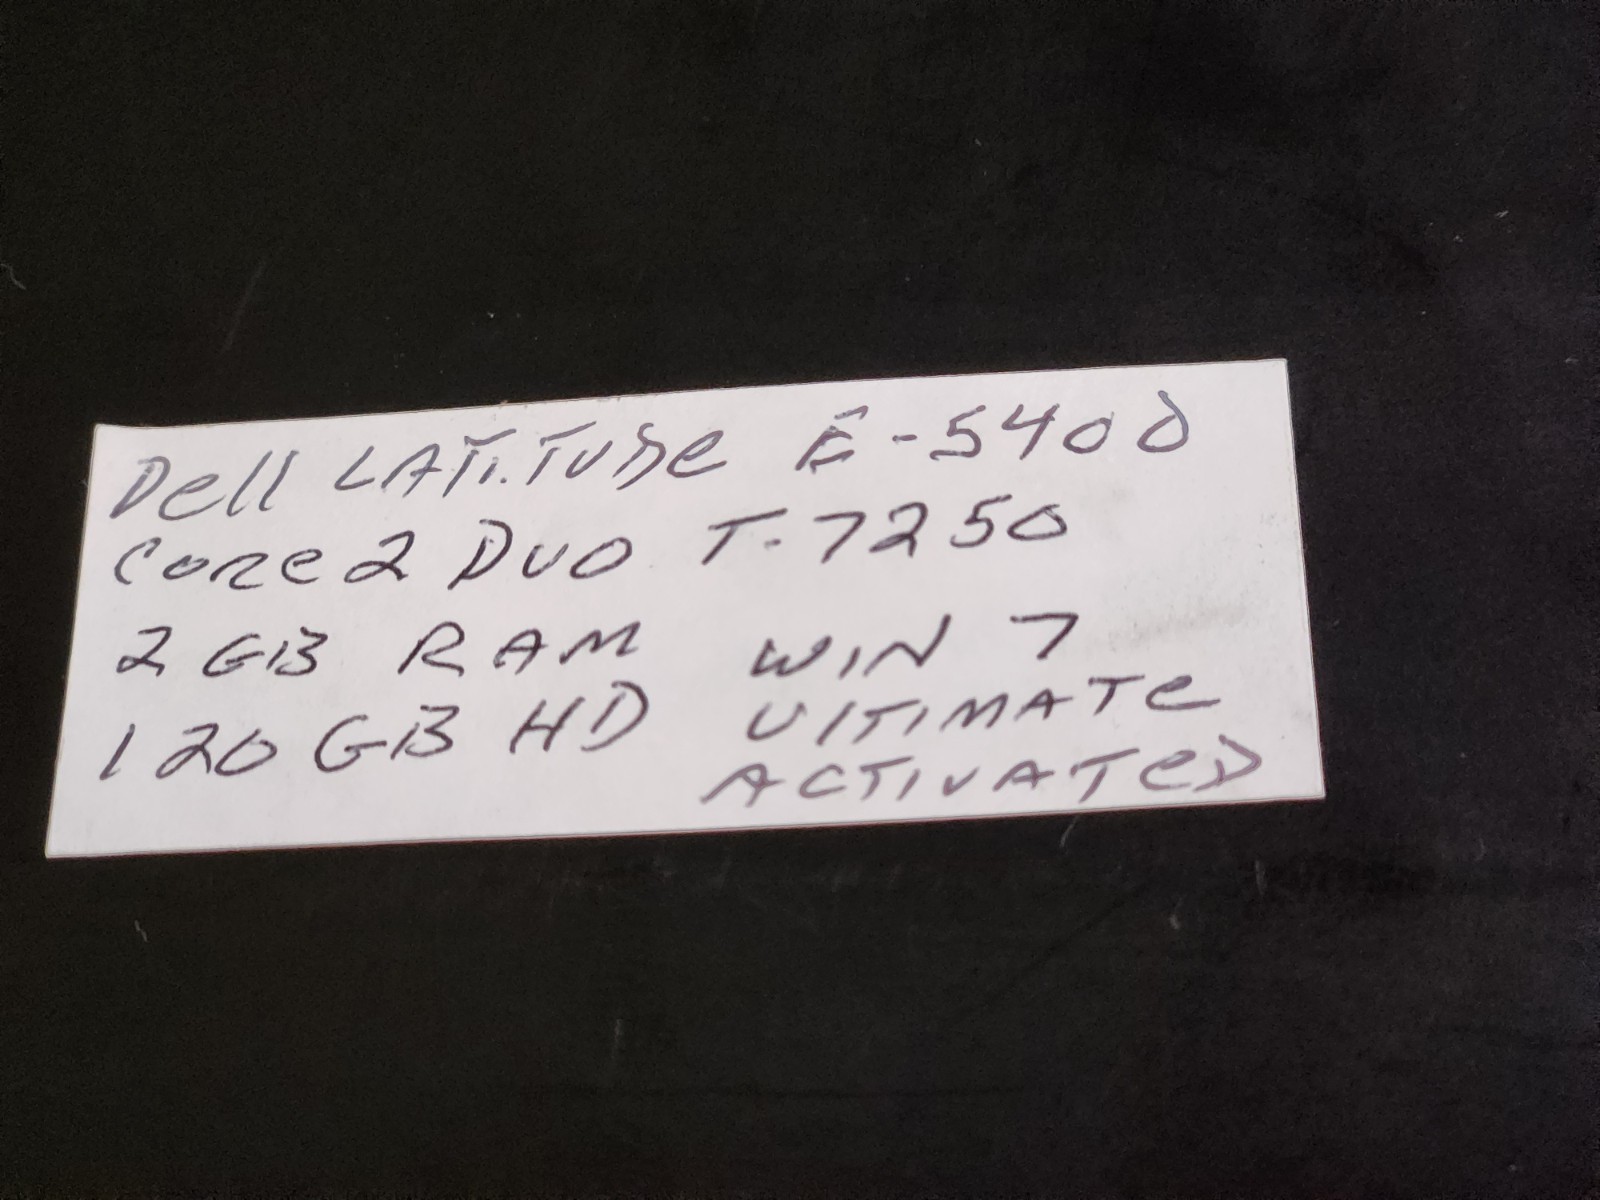 Dell LATiTuDe E-5400
Core 2 Duo T-7250
2 GB RAM WIN 7
120 GB HD UlTIMATe
ACTIVATeD